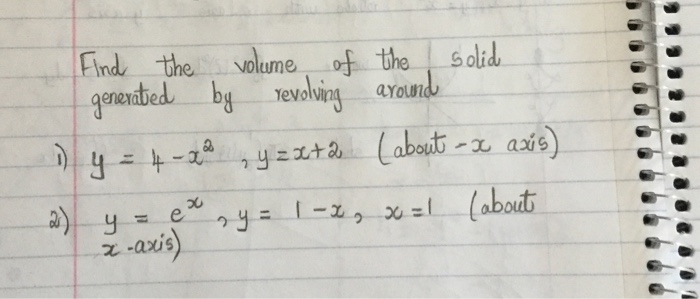 Find the volume of the solid
generatied by revolving around
1) y = 4 - x² , y = x+2 (about - x axis)
2) y = eˣ , y = 1 - x , x = 1 (about
x - axis)